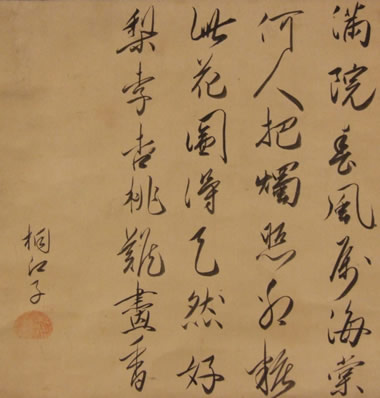 滿院春風屬海棠
何人把燭照紅粧
此花圖得天然好
梨李杏桃難畫香
桐江子